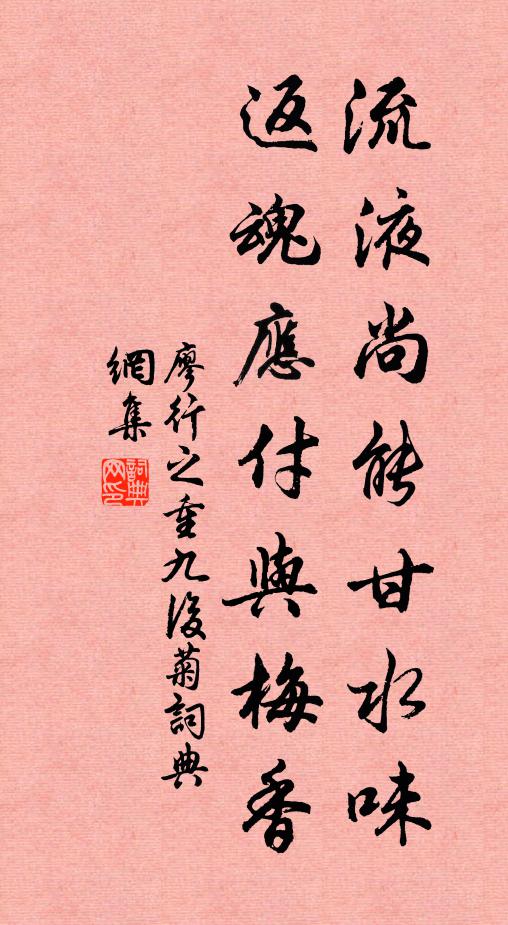 流液尚能甘水味
返魂應付與梅香
廖行之重九後菊詞典
網集
詞典
网印